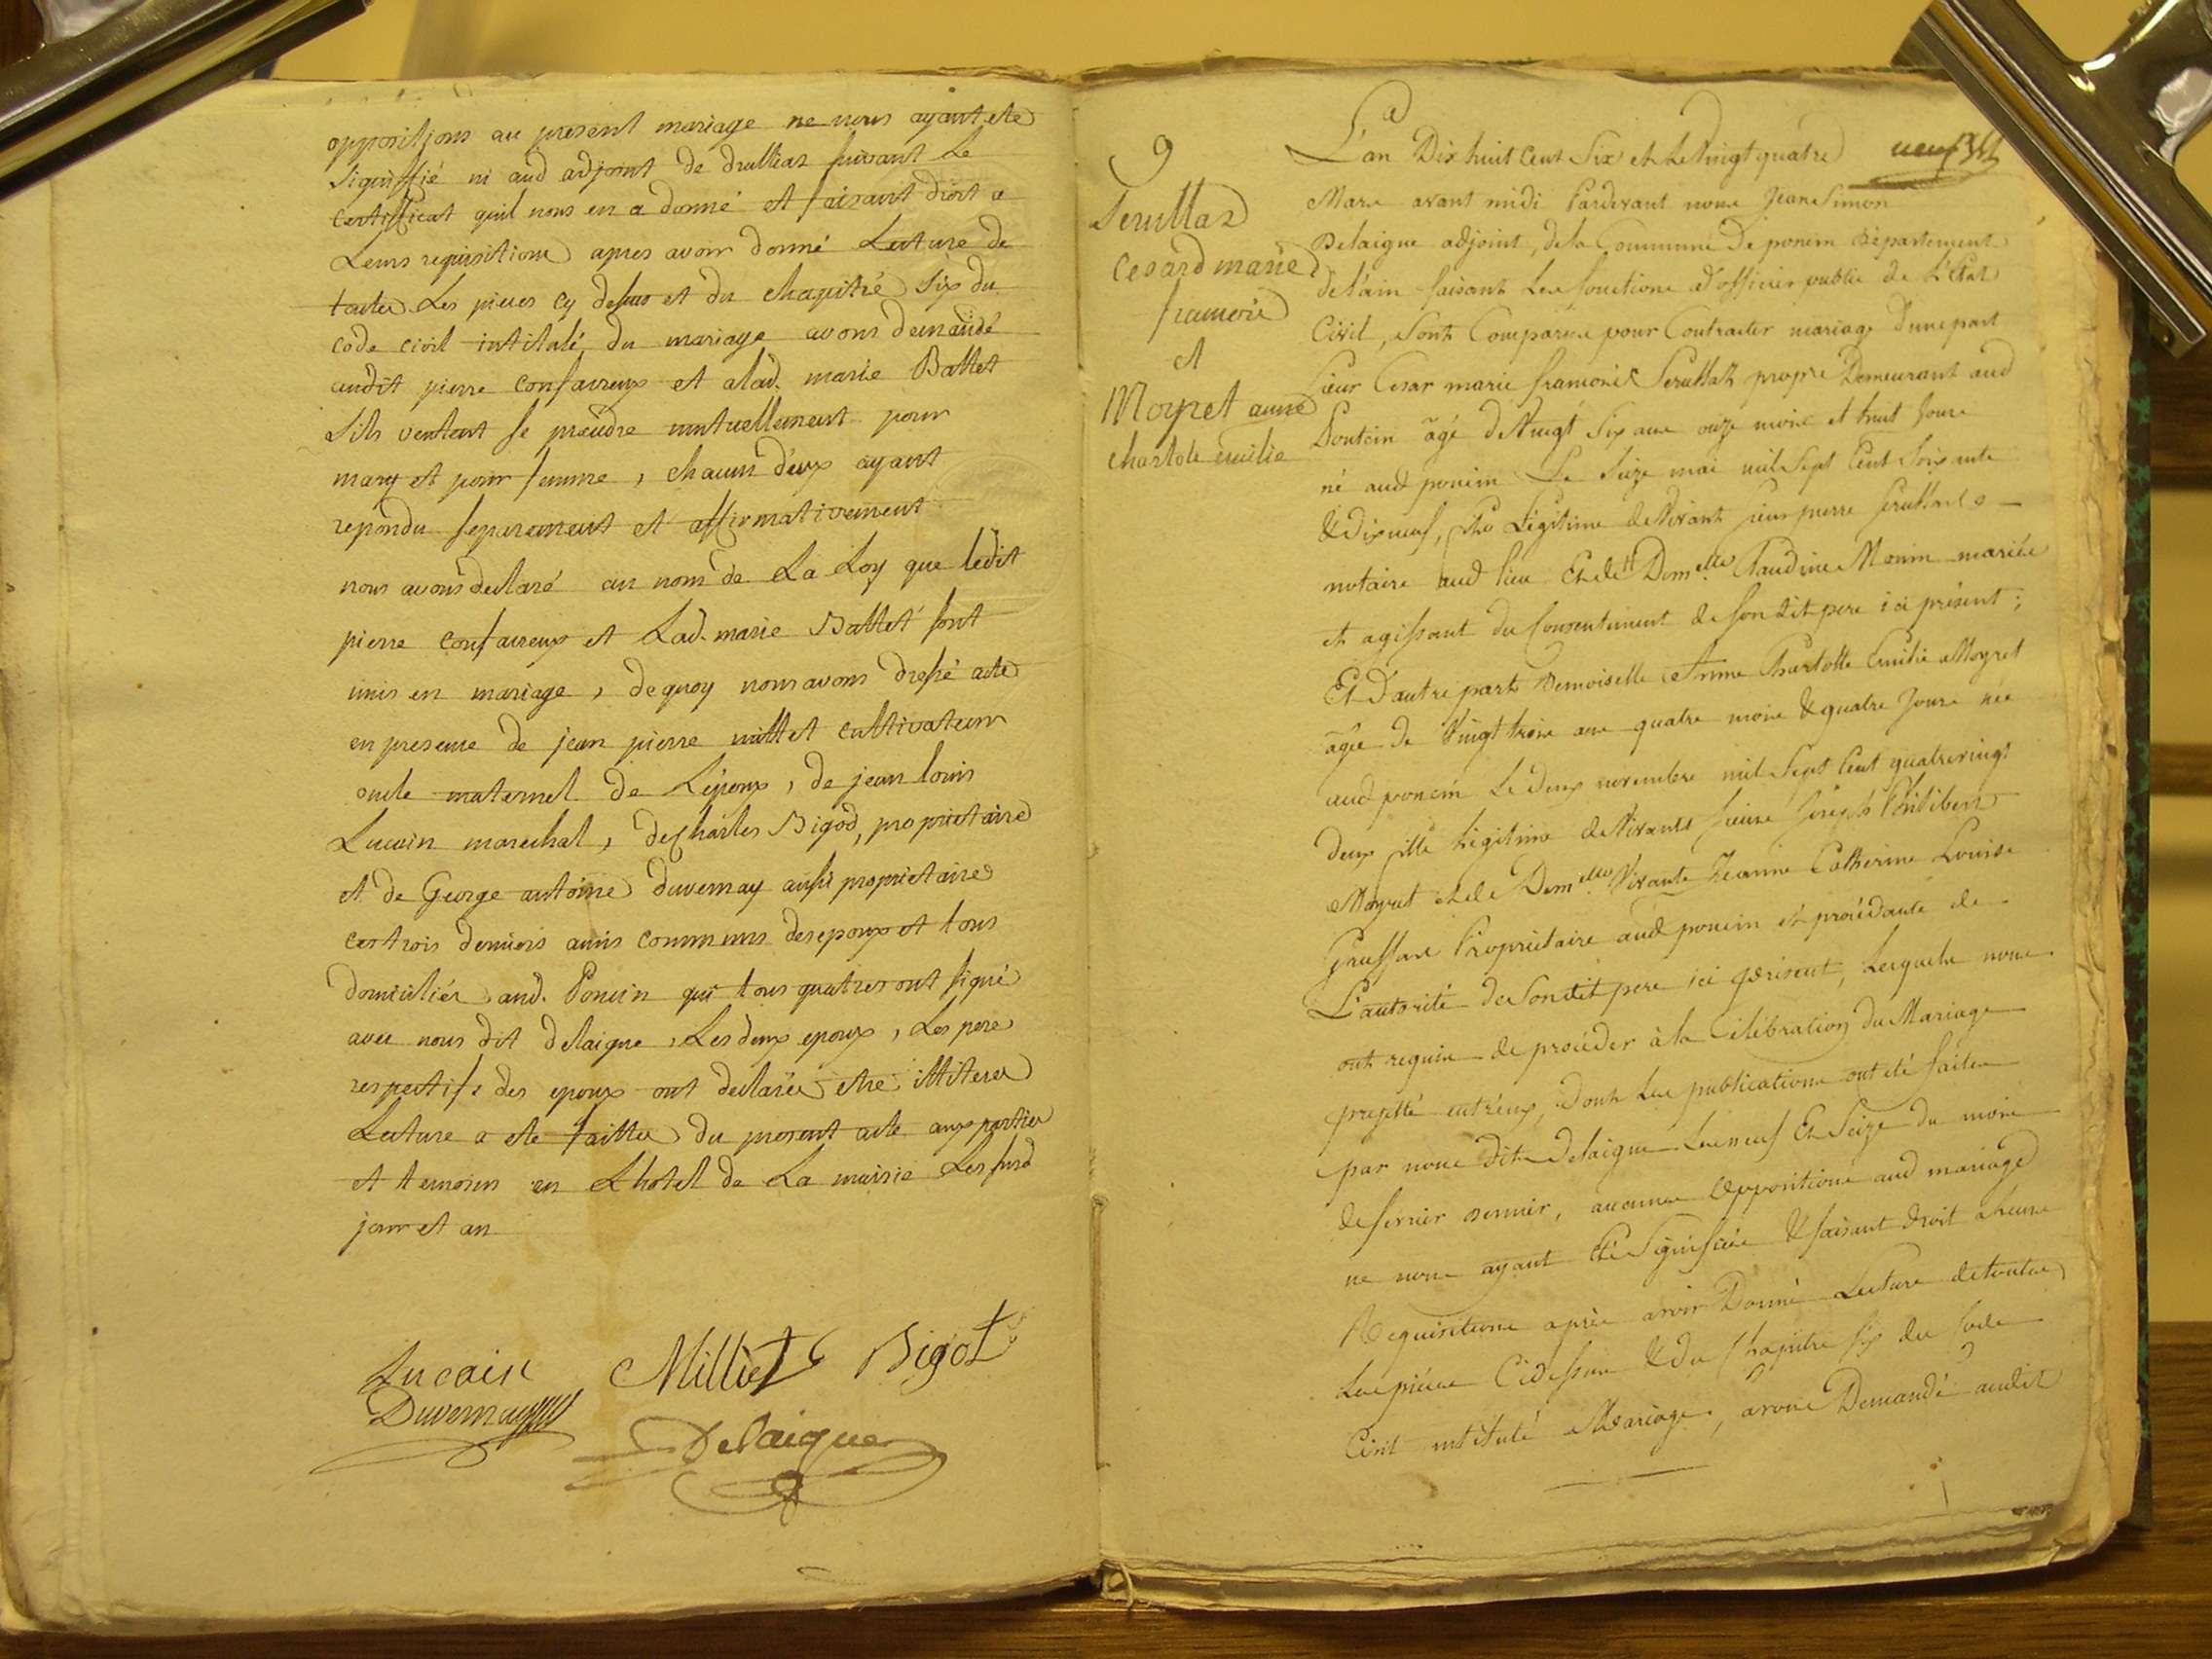 oppositions au present mariage ne nous ayant ete
signiffié ni aud adjoint de druillias suivant Le
certifficat quil nous en a donné et faisant droit a
Leurs requisitions apres avoir donné Lecture de
toutes Les pieces cy dessus et du chapitre six du
code civil intitulé du mariage avons demandé
audit pierre confavreux et alad. marie Battet
sils veulent se prendre mutuellement pour
mary et pour femme, chacun d'eux ayant
repondu separement et affirmativement
nous avons declaré au nom de La Loy que ledit
pierre confavreux et Lad. marie Battet sont
unis en mariage, dequoy nous avons dressé acte
en presence de jean pierre milliet cultivateur
oncle maternel de L'epoux, de jean louis
Lucain marechal, de Charles Bigod, proprietaire
et de George antoine duvernay aussi proprietaire
ces trois derniers amis communs des epoux et tous
domiciliés aud. Poncin qui tous quatres ont signé
avec nous dit delaigue, Les deux epoux, Les pere
respectifs des epoux ont declarés etre illiteres
Lecture a ete faitte du present acte aux parties
et temoins en Lhotel de La mairie Les susd
jour et an
Lucain Milliet Bigot
Duvernay
Delaigue
9
Serullaz
Cesard marie
framoix
et
Moyret anne
charlote emilie
neuf
L'an Dix huit Cent Six et Le Vingt quatre
Mars avant midi Pardevant nous Jean Simon
Delaigue adjoint, de la Commune de poncin département
de l'ain faisant Les fonctions d'officier public de L'Etat
Civil, Sont Comparus pour Contracter mariage d'une part
Sieur Cesar marie framoix Serullaz propre Demeurant aud
Poncin âgé de Vingt Six ans onze mois et huit Jours
né aud poncin Le Seize mai mil Sept Cent Soixante
& dix neuf, fils Légitime de Vivant Sieur pierre Serullaz
notaire aud lieu Et de Demelle Claudine Monin mariés
et agissant du Consentement de son dit pere ici présent;
Et D'autre part Demoiselle Anne Charlotte Emilie Moyret
âgée de Vingt trois ans quatre mois & quatre Jours née
aud poncin Le Deux novembre mil Sept Cent quatrevingt
deux fille Légitime de Vivants Sieur Joseph Philibert
Moyret et de Demelle Vivante Jeanne Catherine Louise
Proprietaire aud poncin et procédante de
L'autorité de Son dit pere ici présent, Lesquels nous
ont requis de procéder à la Célébration du Mariage
projetté entr'eux, dont Les publications ont été faites
par nous dit Delaigue Les neuf Et Seize du mois
de fevrier dernier, aucunes Oppositions aud mariage
ne nous ayant Eté Signifiées & faisant droit a Leurs
Requisitions après avoir Donné Lecture de toutes
Les pièces Cidessus & du Chapitre six du Code
Civil intitulé Mariage, avons Demandé audit